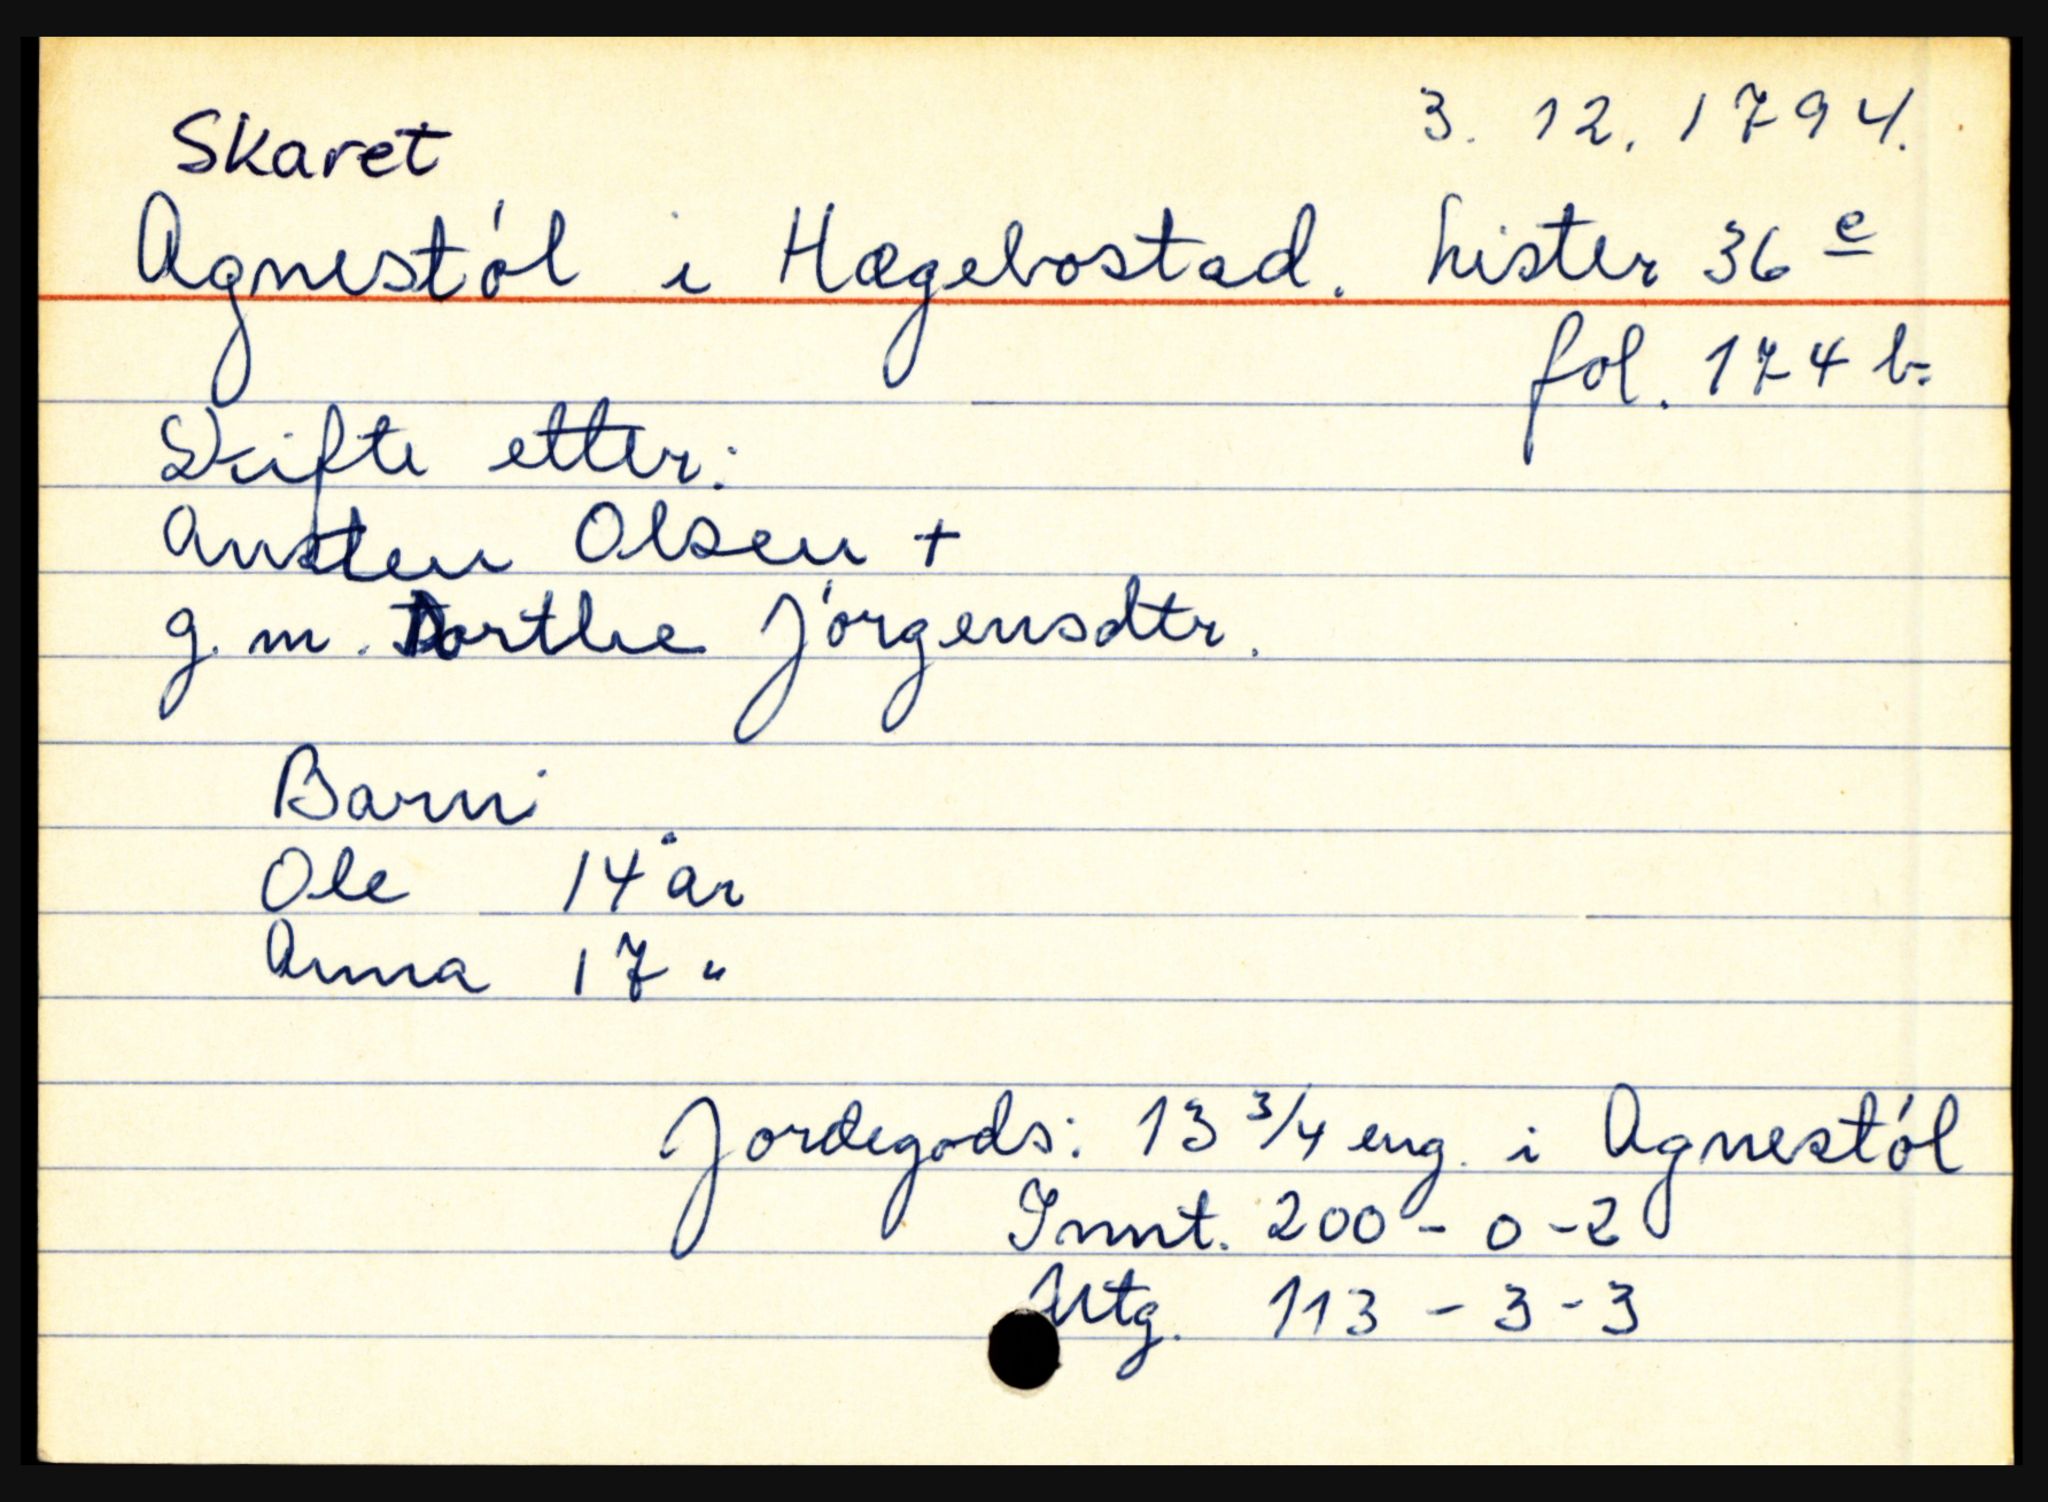 Skaret
3. 12. 1794.
Agnestól i Hægebostad. Lister 36 e
fol. 174 b.
Skifte etter:
Austen Olsen +
g. m. Dorthe Jórgensdtr.
Barn:
Ole 14 år
Anna 17 "
Jordegods: 13 3/4 eng. i Agnestól
Innt. 200 - 0 - 2
Utg. 113 - 3 - 3